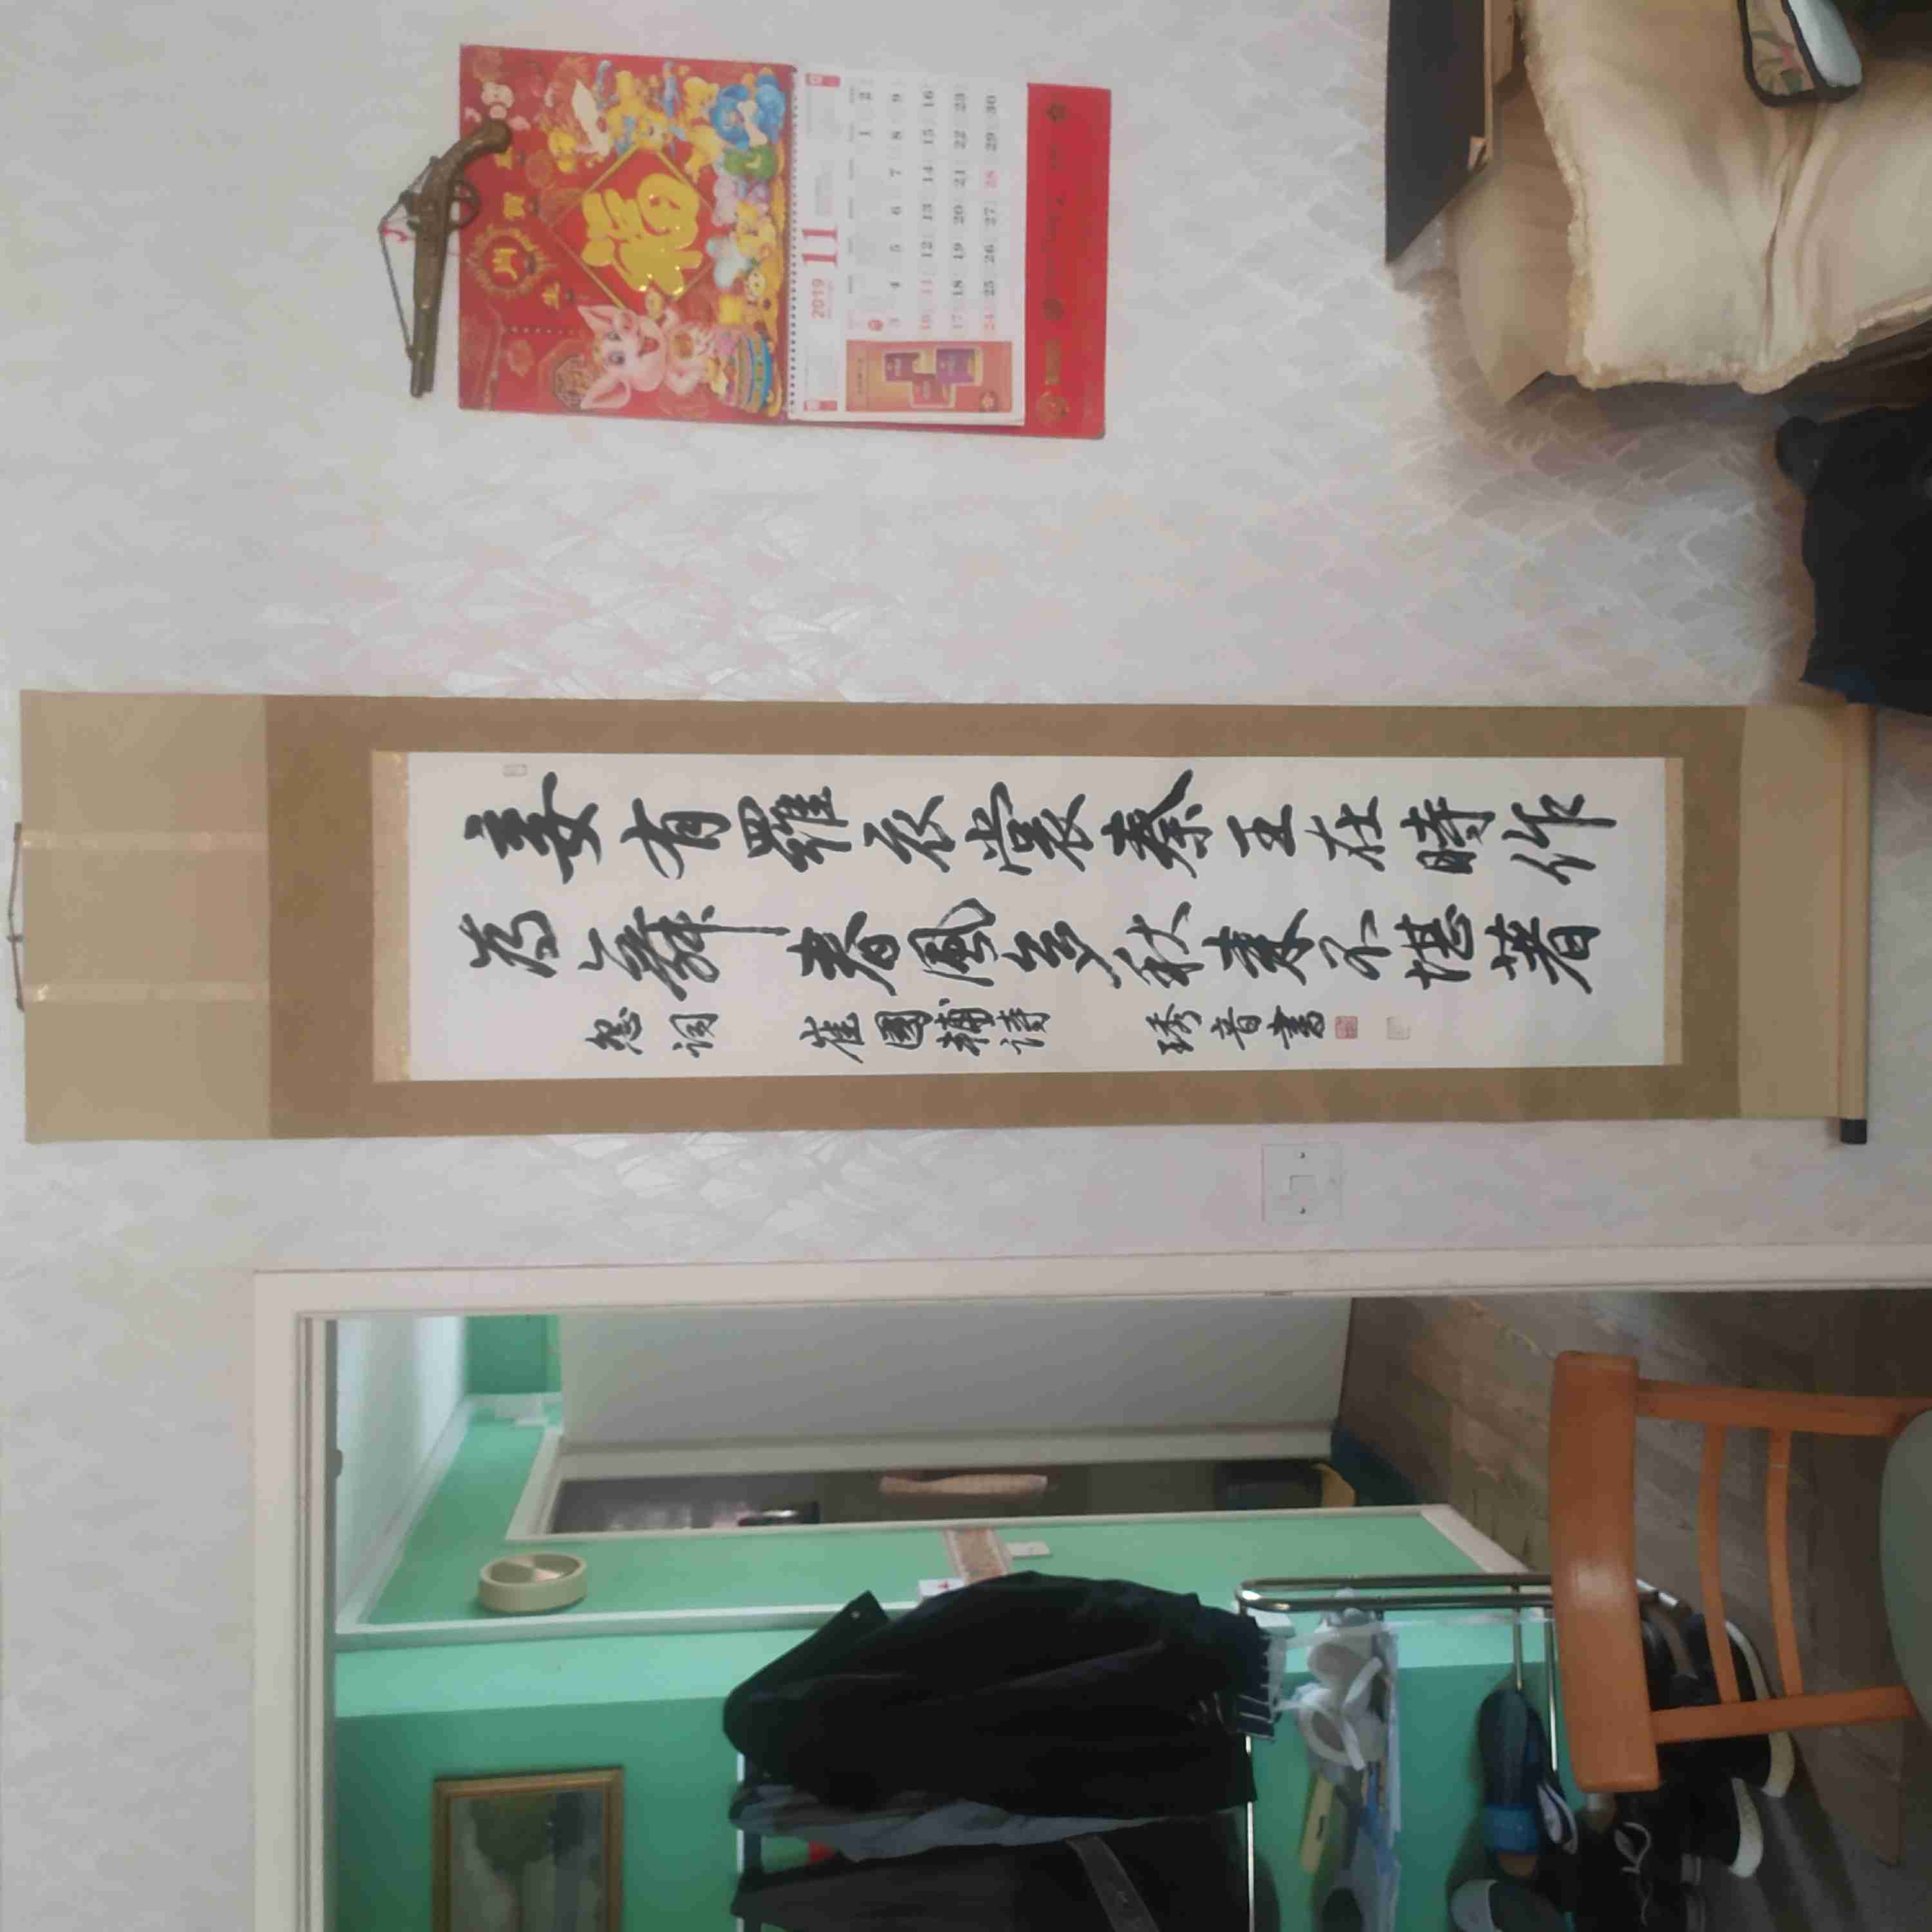 妾有羅衣裳秦王在時作
為舞春風多秋來不堪著
怨詞 崔國輔詩 琇音書
福
2019
11
1 2
3 4 5 6 7 8 9
10 11 12 13 14 15 16
17 18 19 20 21 22 23
24 25 26 27 28 29 30